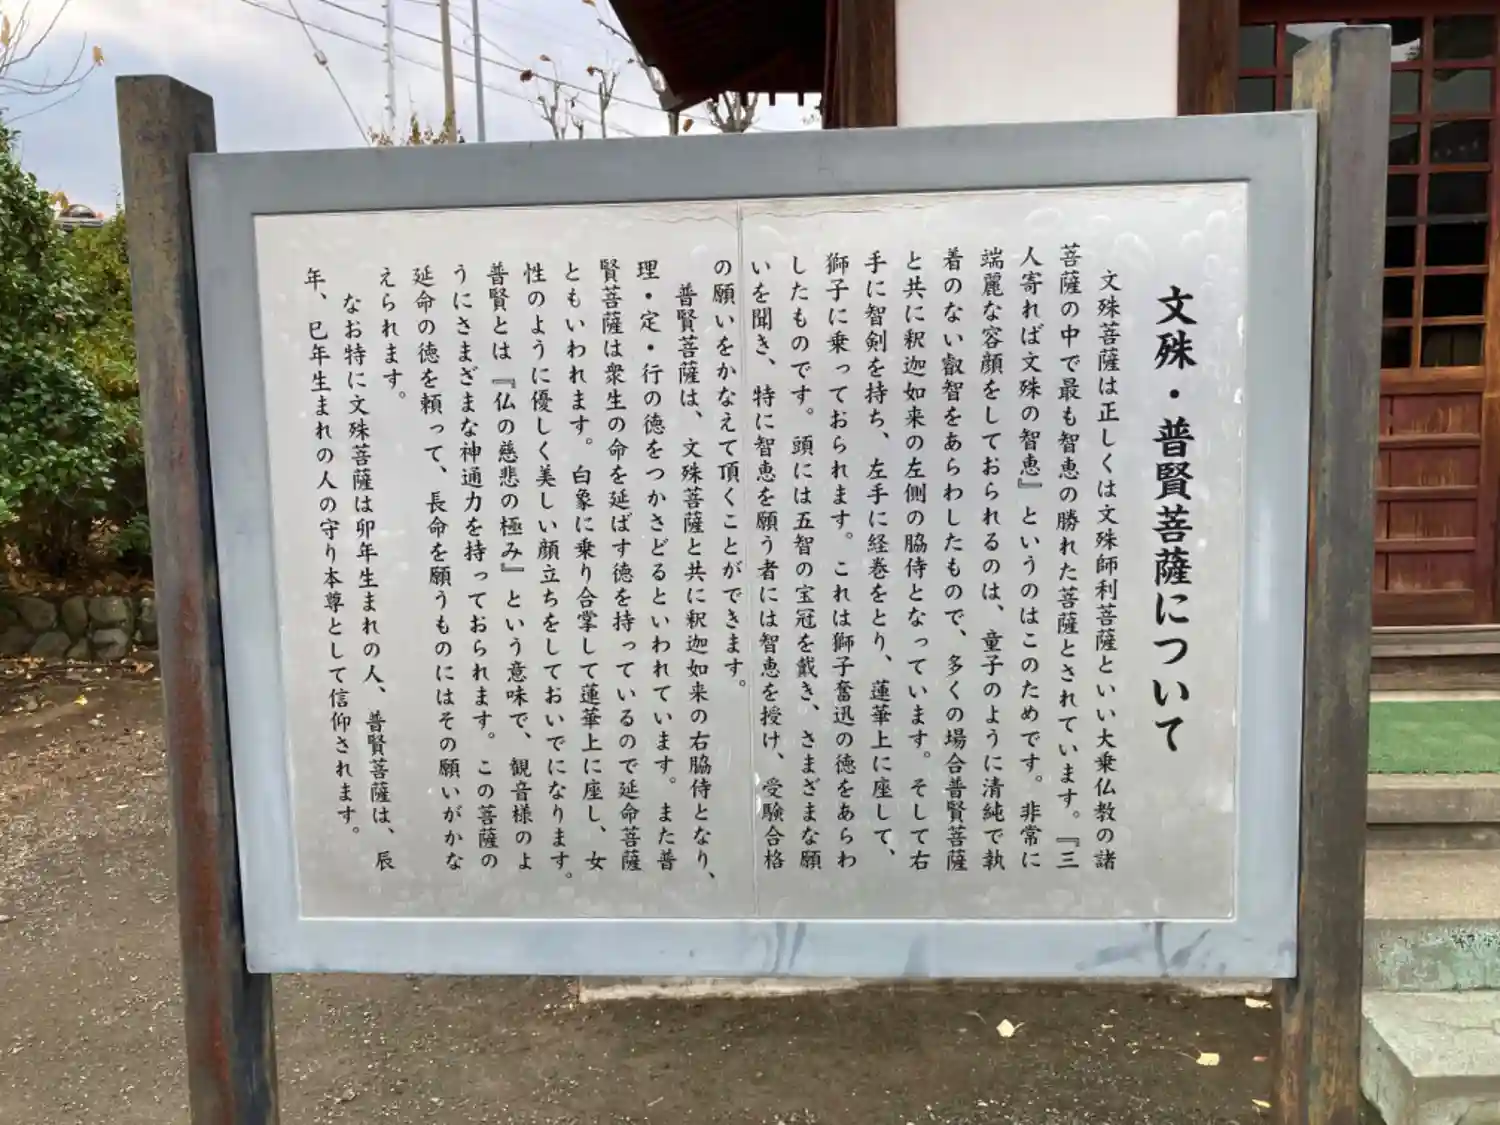 文殊・普賢菩薩について
文殊菩薩は正しくは文殊師利菩薩といい大乗仏教の諸
菩薩の中で最も智恵の勝れた菩薩とされています。『三
人寄れば文殊の智恵』というのはこのためです。非常に
端麗な容顔をしておられるのは、童子のように清純で執
着のない叡智をあらわしたもので、多くの場合普賢菩薩
と共に釈迦如来の左側の脇侍となっています。そして右
手に智剣を持ち、左手に経巻をとり、蓮華上に座して、
獅子に乗っておられます。これは獅子奮迅の徳をあらわ
したものです。頭には五智の宝冠を戴き、さまざまな願
いを聞き、特に智恵を願う者には智恵を授け、受験合格
の願いをかなえて頂くことができます。
普賢菩薩は、文殊菩薩と共に釈迦如来の右脇侍となり、
理・定・行の徳をつかさどるといわれています。また普
賢菩薩は衆生の命を延ばす徳を持っているので延命菩薩
ともいわれます。白象に乗り合掌して蓮華上に座し、女
性のように優しく美しい顔立ちをしておいでになります。
普賢とは『仏の慈悲の極み』という意味で、観音様のよ
うにさまざまな神通力を持っておられます。この菩薩の
延命の徳を頼って、長命を願うものにはその願いがかな
えられます。
なお特に文殊菩薩は卯年生まれの人、普賢菩薩は、辰
年、巳年生まれの人の守り本尊として信仰されます。